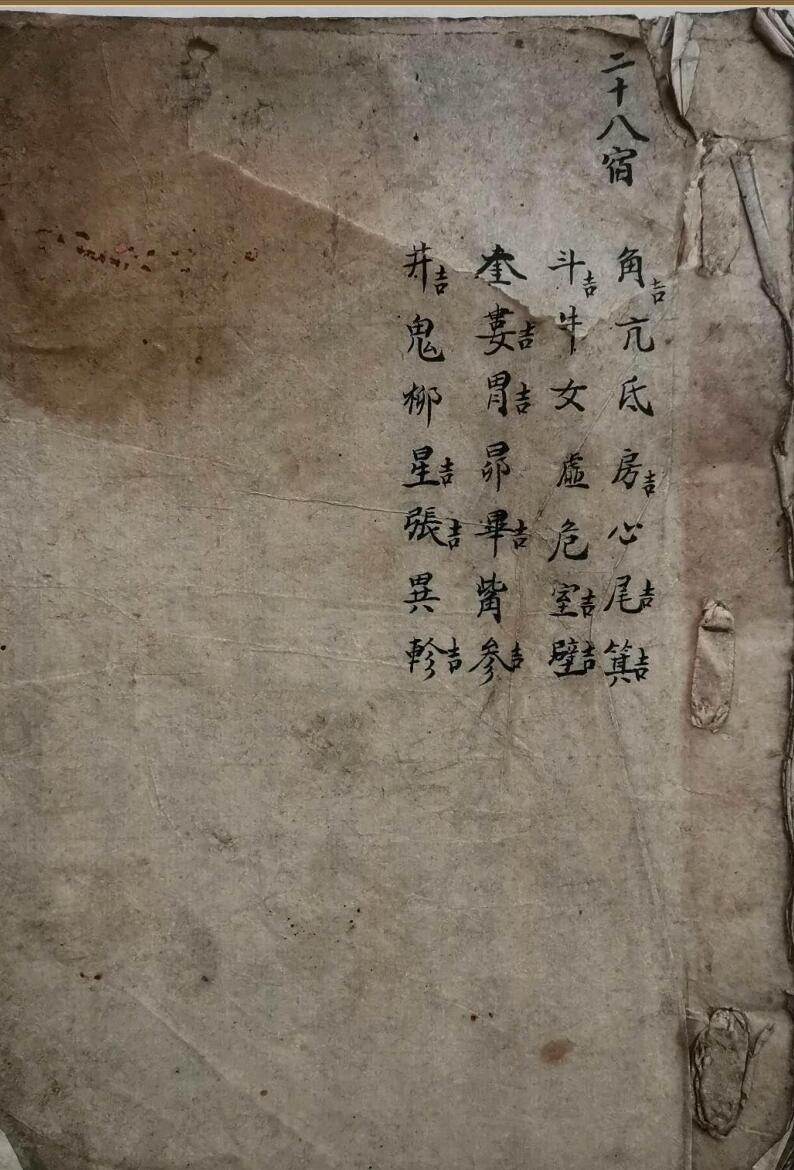 二十八宿
角吉亢氐房吉心尾吉箕吉
斗吉牛女虛危室吉壁吉
奎婁吉胃吉昴畢吉觜參吉
井吉鬼柳星吉張吉異軫吉